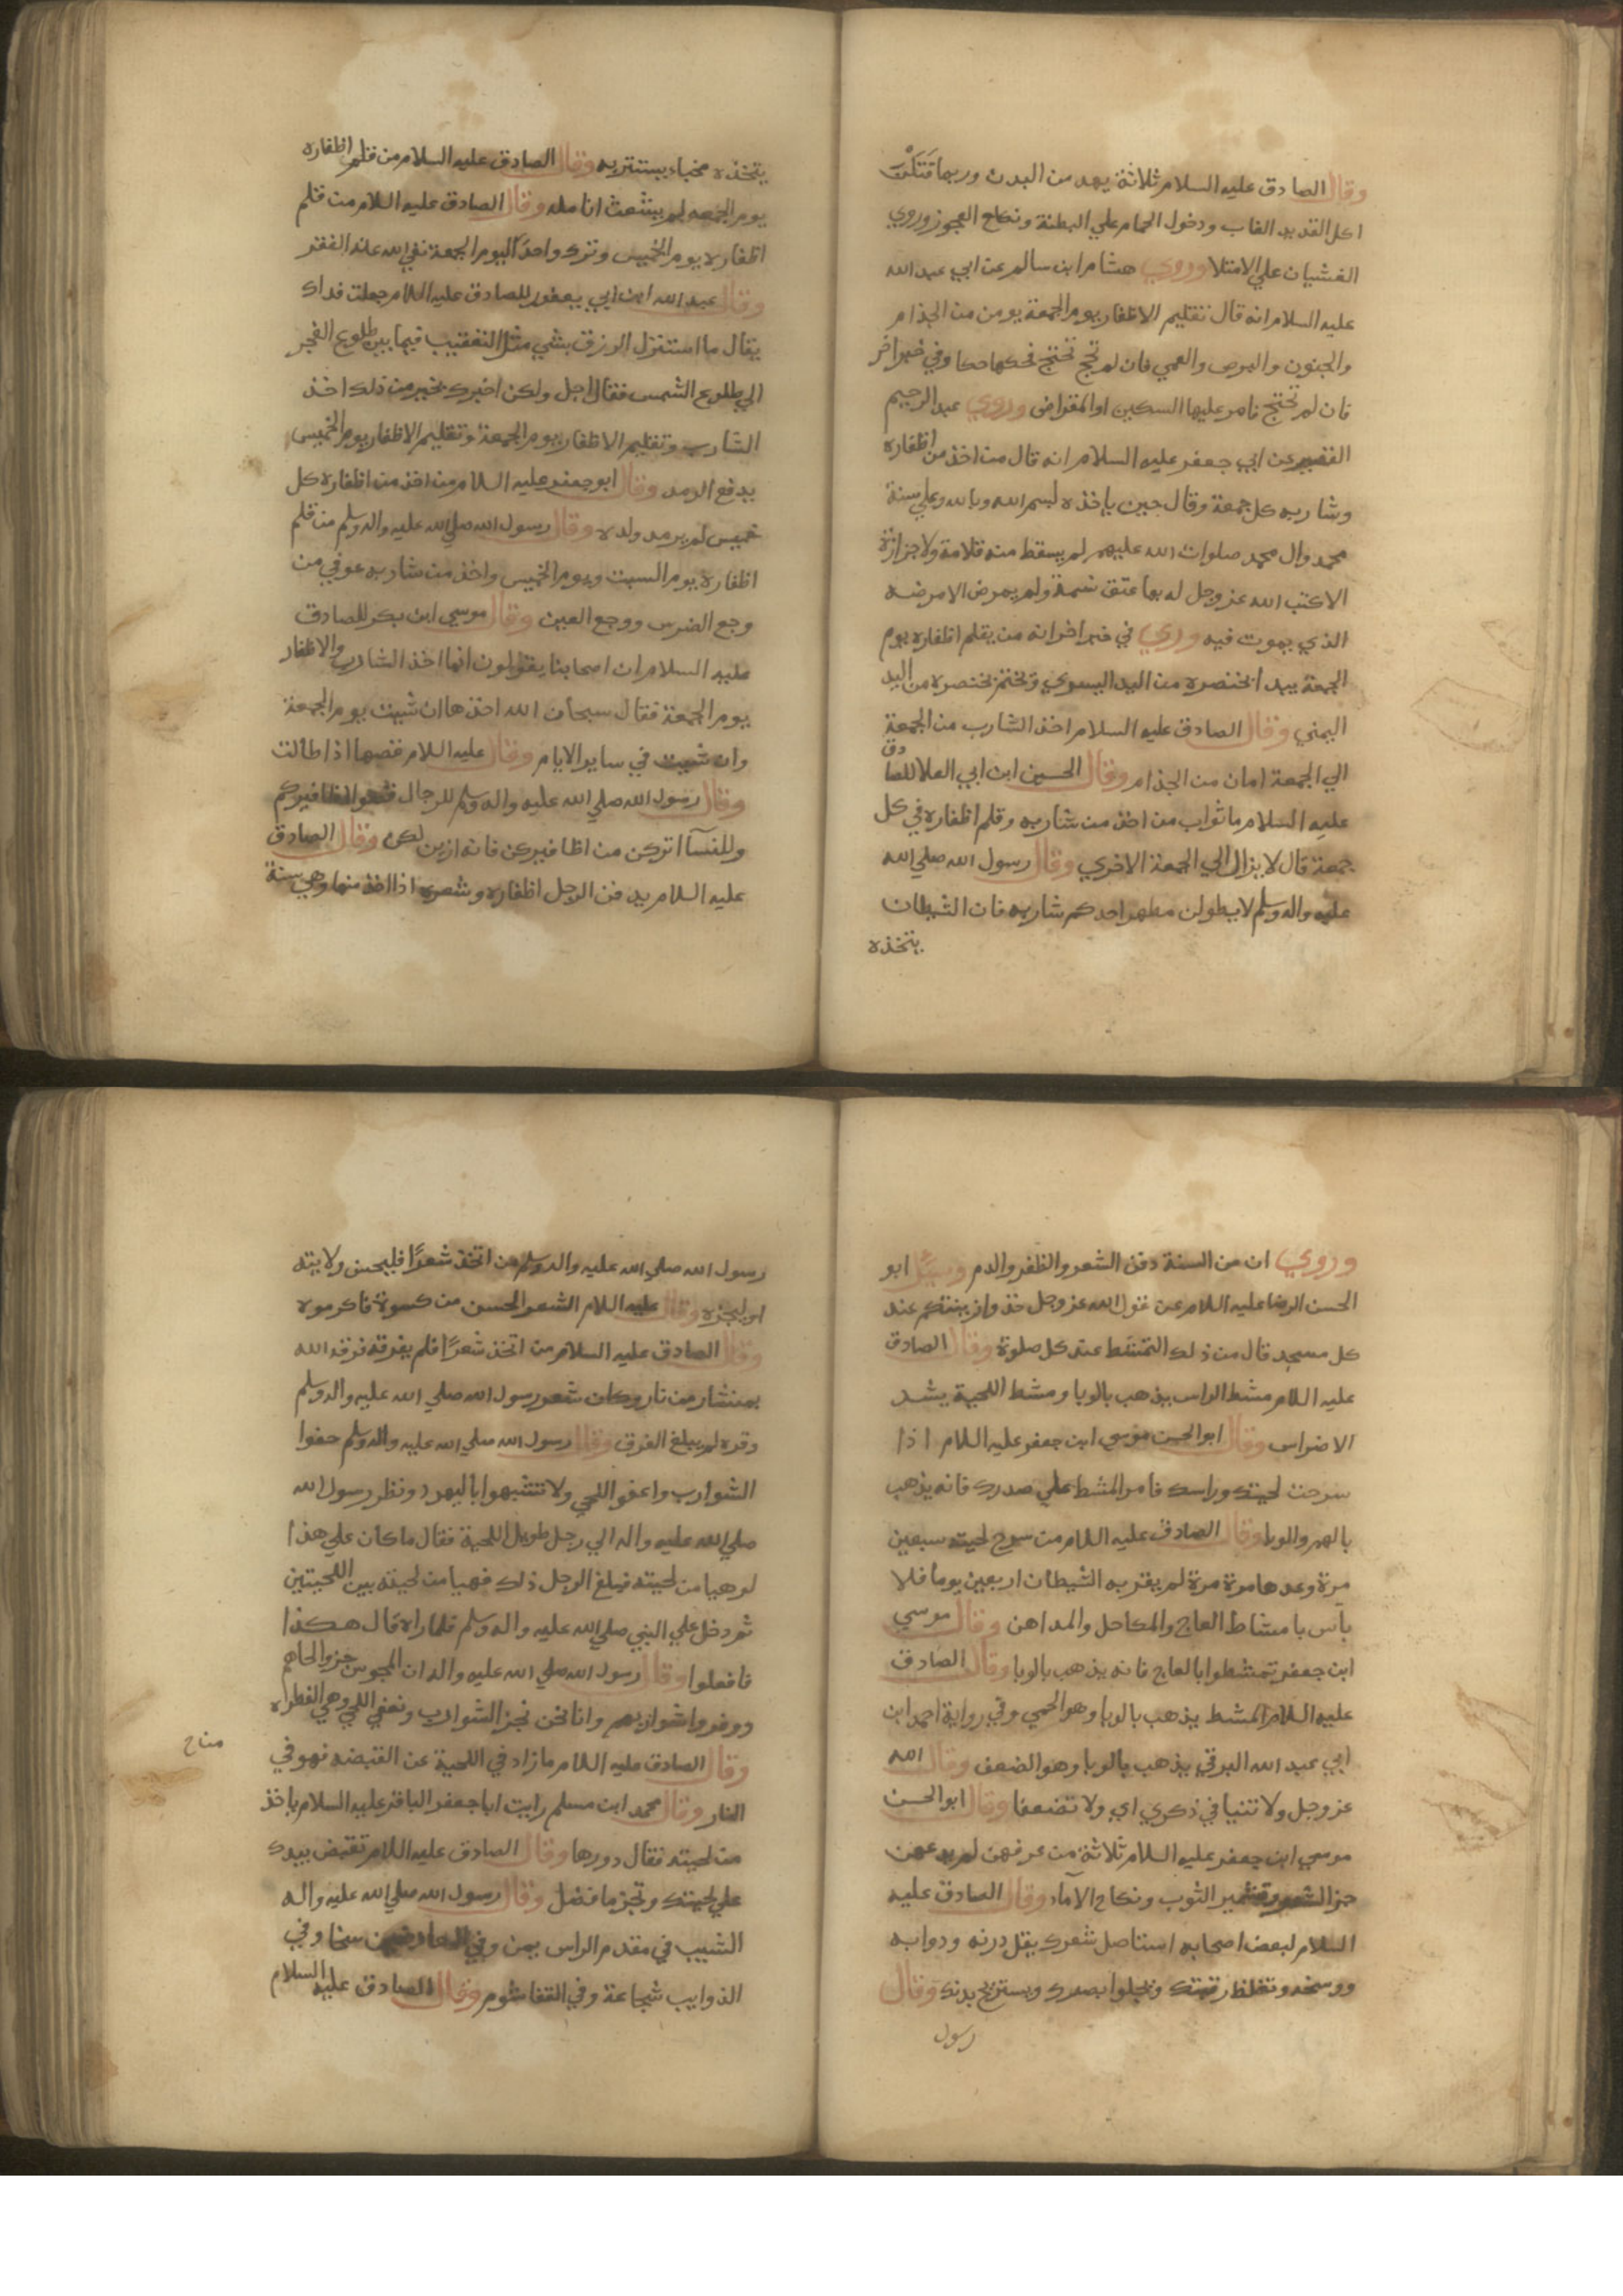 وقال الصادق عليه السلام ثلاثة يهد من البدن وربما قتلن
اكل القديد الغاب ودخول الحمام علي البطنة ونكاح العجوز وروي
الغشيان علي الامتلا وروي هشام ابن سالم عن ابي عبد الله
عليه السلام انه قال تقليم الاظفار يوم الجمعة يومن من الجذام
والجنون والبرص والعمي فان لم تحتج فحكها حكا وفي خبر اخر
فان لم تحتج فامر عليها السكين او المقراض وروي عبد الرحيم
القصير عن ابي جعفر عليه السلام انه قال من اخذ من اظفاره
وشاربه كل جمعة وقال حين ياخذه بسم الله وبالله وعلي سنة
محمد وال محمد صلوات الله عليهم لم يسقط منه قلامة ولا جزازة
الا كتب الله عز وجل له بها عتق نسمة ولم يمرض الا مرضه
الذي يموت فيه وروي في خبر اخر انه من يقلم اظفاره يوم
الجمعة يبدا بخنصره من اليد اليسري ويختم بخنصره من اليد
اليمني وقال الصادق عليه السلام اخذ الشارب من الجمعة
الي الجمعة امان من الجذام وقال الحسين ابن ابي العلا للصادق
عليه السلام ما ثواب من اخذ من شاربه وقلم اظفاره في كل
جمعة قال لا يزال الي الجمعة الاخري وقال رسول الله صلي الله
عليه واله وسلم لا يطولن احدكم شاربه فان الشيطان
يتخذه
يتخذه مخباء يستتر به وقال الصادق عليه السلام من قلم اظفاره
يوم الجمعه لم يشعث انامله وقال الصادق عليه السلام من قلم
اظفاره يوم الخميس وترك واحدا ليوم الجمعة نفي الله عنه الفقر
وقال عبد الله ابن ابي يعفور للصادق عليه السلام جعلت فداك
يقال ما استنزل الرزق بشي مثل التعقيب فيما بين طلوع الفجر
الي طلوع الشمس فقال اجل ولكن اخبرك بخير من ذلك اخذ
الشارب وتقليم الاظفار يوم الجمعة وتقليم الاظفار يوم الخميس
يدفع الرمد وقال ابو جعفر عليه السلام من اخذ من اظفاره كل
خميس لم يرمد ولده وقال رسول الله صلي الله عليه واله وسلم من قلم
اظفاره يوم السبت ويوم الخميس واخذ من شاربه عوفي من
وجع الضرس ووجع العين وقال موسي ابن بكر للصادق
عليه السلام ان اصحابنا يقولون انما اخذ الشارب والاظفار
يوم الجمعة فقال سبحان الله اخذها ان شيت يوم الجمعة
وان شيت في ساير الايام وقال عليه السلام قصها اذا طالت
وقال رسول الله صلي الله عليه واله وسلم للرجال قصوا اظافيركم
وللنسآ اتركن من اظافيركن فانه ازين لكن وقال الصادق
عليه السلام يدفن الرجل اظفاره وشعره اذا اخذ منها وهي سنة
وروي ان من السنة دفن الشعر والظفر والدم وسئل ابو
الحسن الرضا عليه السلام عن قول الله عز وجل خذوا زينتكم عند
كل مسجد قال من ذلك التمشط عند كل صلوة وقال الصادق
عليه السلام مشط الراس يذهب بالوبا ومشط اللحية يشد
الاضراس وقال ابو الحسن موسي ابن جعفر عليه السلام اذا
سرحت لحيتك وراسك فامر المشط علي صدرك فانه يذهب
بالهم والوبا وقال الصادق عليه السلام من سرح لحيته سبعين
مرة وعدها مرة مرة لم يقربه الشيطان اربعين يوما فلا
بأس بامشاط العاج والمكاحل والمداهن وقال موسي
ابن جعفر تمشطوا بالعاج فانه يذهب بالوبا وقال الصادق
عليه السلام المشط يذهب بالوبا وهو الحمي وفي رواية احمد ابن
ابي عبد الله البرقي يذهب بالوبا وهو الضعف وقال الله
عز وجل ولا تنيا في ذكري اي ولا تضعفا وقال ابو الحسن
موسي ابن جعفر عليه السلام ثلاثة من عرفهن لم يدعهن
جز الشعر وتشمير الثوب ونكاح الآماء وقال الصادق عليه
السلام لبعض اصحابه استاصل شعرك يقل درنه ودوابه
ووسخه وتغلظ رقبتك ويجلوا بصرك ويستريح بدنك وقال
رسول
رسول الله صلي الله عليه واله وسلم من اتخذ شعرًا فليحسن ولايته
او ليجزه وقال عليه السلام الشعر الحسن من كسوة فاكرموه
وقال الصادق عليه السلام من اتخذ شعرًا فلم يفرقه فرقه الله
بمنشار من نار وكان شعر رسول الله صلي الله عليه واله وسلم
وفره لم يبلغ الفرق وقال رسول الله صلي الله عليه واله وسلم حفوا
الشوارب واعفوا اللحي ولا تتشبهوا باليهود ونظر رسول الله
صلي الله عليه واله الي رجل طويل اللحية فقال ما كان علي هذا
لو هيا من لحيته فبلغ الرجل ذلك فهيا من لحيته بين اللحيتين
ثم دخل علي النبي صلي الله عليه واله وسلم فلما راه قال هكذا
فافعلوا وقال رسول الله صلي الله عليه واله ان المجوس جزوا لحاهم
ووفروا شواربهم وانا نحن نجز الشوارب ونعفي اللحي وهي الفطره
وقال الصادق عليه السلام ما زاد في اللحية عن القبضه فهو في
النار وقال محمد ابن مسلم رايت ابا جعفر الباقر عليه السلام ياخذ
من لحيته فقال دورها وقال الصادق عليه السلام تقبض بيدك
علي لحيتك وتجز ما فضل وقال رسول الله صلي الله عليه واله
الشيب في مقدم الراس يمن وفي العارضين سخا وفي
الذوايب شجاعة وفي القفا شوم وقال الصادق عليه السلام